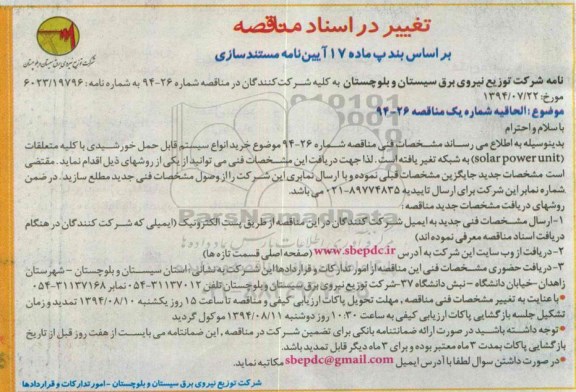 تغییر در اسناد مناقصه
بر اساس بند پ ماده ۱۷ آیین نامه مستندسازی
شرکت توزیع نیروی برق سیستان و بلوچستان
نامه شرکت توزیع نیروی برق سیستان و بلوچستان به کلیه شرکت کنندگان در مناقصه شماره ۲۶-۹۴ به شماره نامه: ۶۰۲۳/۱۹۷۹۶
مورخ: ۱۳۹۴/۰۷/۲۲
موضوع: الحاقیه شماره یک مناقصه ۲۶-۹۴
با سلام و احترام
بدینوسیله به اطلاع می رساند مشخصات فنی مناقصه شماره ۲۶-۹۴ موضوع خرید انواع سیستم قابل حمل خورشیدی با کلیه متعلقات
(solar power unit) به شبکه تغییر یافته است. لذا جهت دریافت این مشخصات فنی می توانید از یکی از روشهای ذیل اقدام نماید. مقتضی
است مشخصات جدید جایگزین مشخصات قبلی نموده و با ارسال نمابری این شرکت را از وصول مشخصات فنی جدید مطلع سازید. در ضمن
شماره نمابر این شرکت برای ارسال تاییدیه ۸۹۷۷۴۸۳۵-۰۲۱ می باشد.
روشهای دریافت مشخصات جدید مناقصه:
۱- ارسال مشخصات فنی جدید به ایمیل شرکت کنندگان در این مناقصه از طریق پست الکترونیک (ایمیلی که شرکت کنندگان در هنگام
دریافت اسناد مناقصه معرفی نموده اند)
۲- دریافت از وب سایت این شرکت به آدرس www.sbepdc.ir (صفحه اصلی قسمت تازه ها)
۳- دریافت حضوری مشخصات فنی این مناقصه از امور تدارکات و قراردادها این شرکت به نشانی: استان سیستان و بلوچستان - شهرستان
زاهدان - خیابان دانشگاه - نبش دانشگاه ۳۷- شرکت توزیع نیروی برق سیستان و بلوچستان تلفن ۳۱۱۳۷۰۱۲-۰۵۴ نمابر ۳۱۱۳۷۱۶۸-۰۵۴
• با عنایت به تغییر مشخصات فنی مناقصه، مهلت تحویل پاکات ارزیابی کیفی و مناقصه تا ساعت ۱۵ روز یکشنبه ۱۳۹۴/۰۸/۱۰ تمدید و زمان
تشکیل جلسه بازگشایی پاکات ارزیابی کیفی به ساعت ۱۰:۳۰ روز دوشنبه ۱۳۹۴/۰۸/۱۱ موکول گردید
• توجه داشته باشید در صورت ارائه ضمانتنامه بانکی برای تضمین شرکت در مناقصه، این ضمانتنامه می بایست از هفت روز قبل از تاریخ
بازگشایی پاکات بمدت ۳ ماه معتبر بوده و برای ۳ ماه دیگر قابل تمدید باشد.
• در صورت داشتن سوال لطفا با آدرس ایمیل sbepdc@gmail.com مکاتبه نماید.
شرکت توزیع نیروی برق سیستان و بلوچستان - امور تدارکات و قراردادها